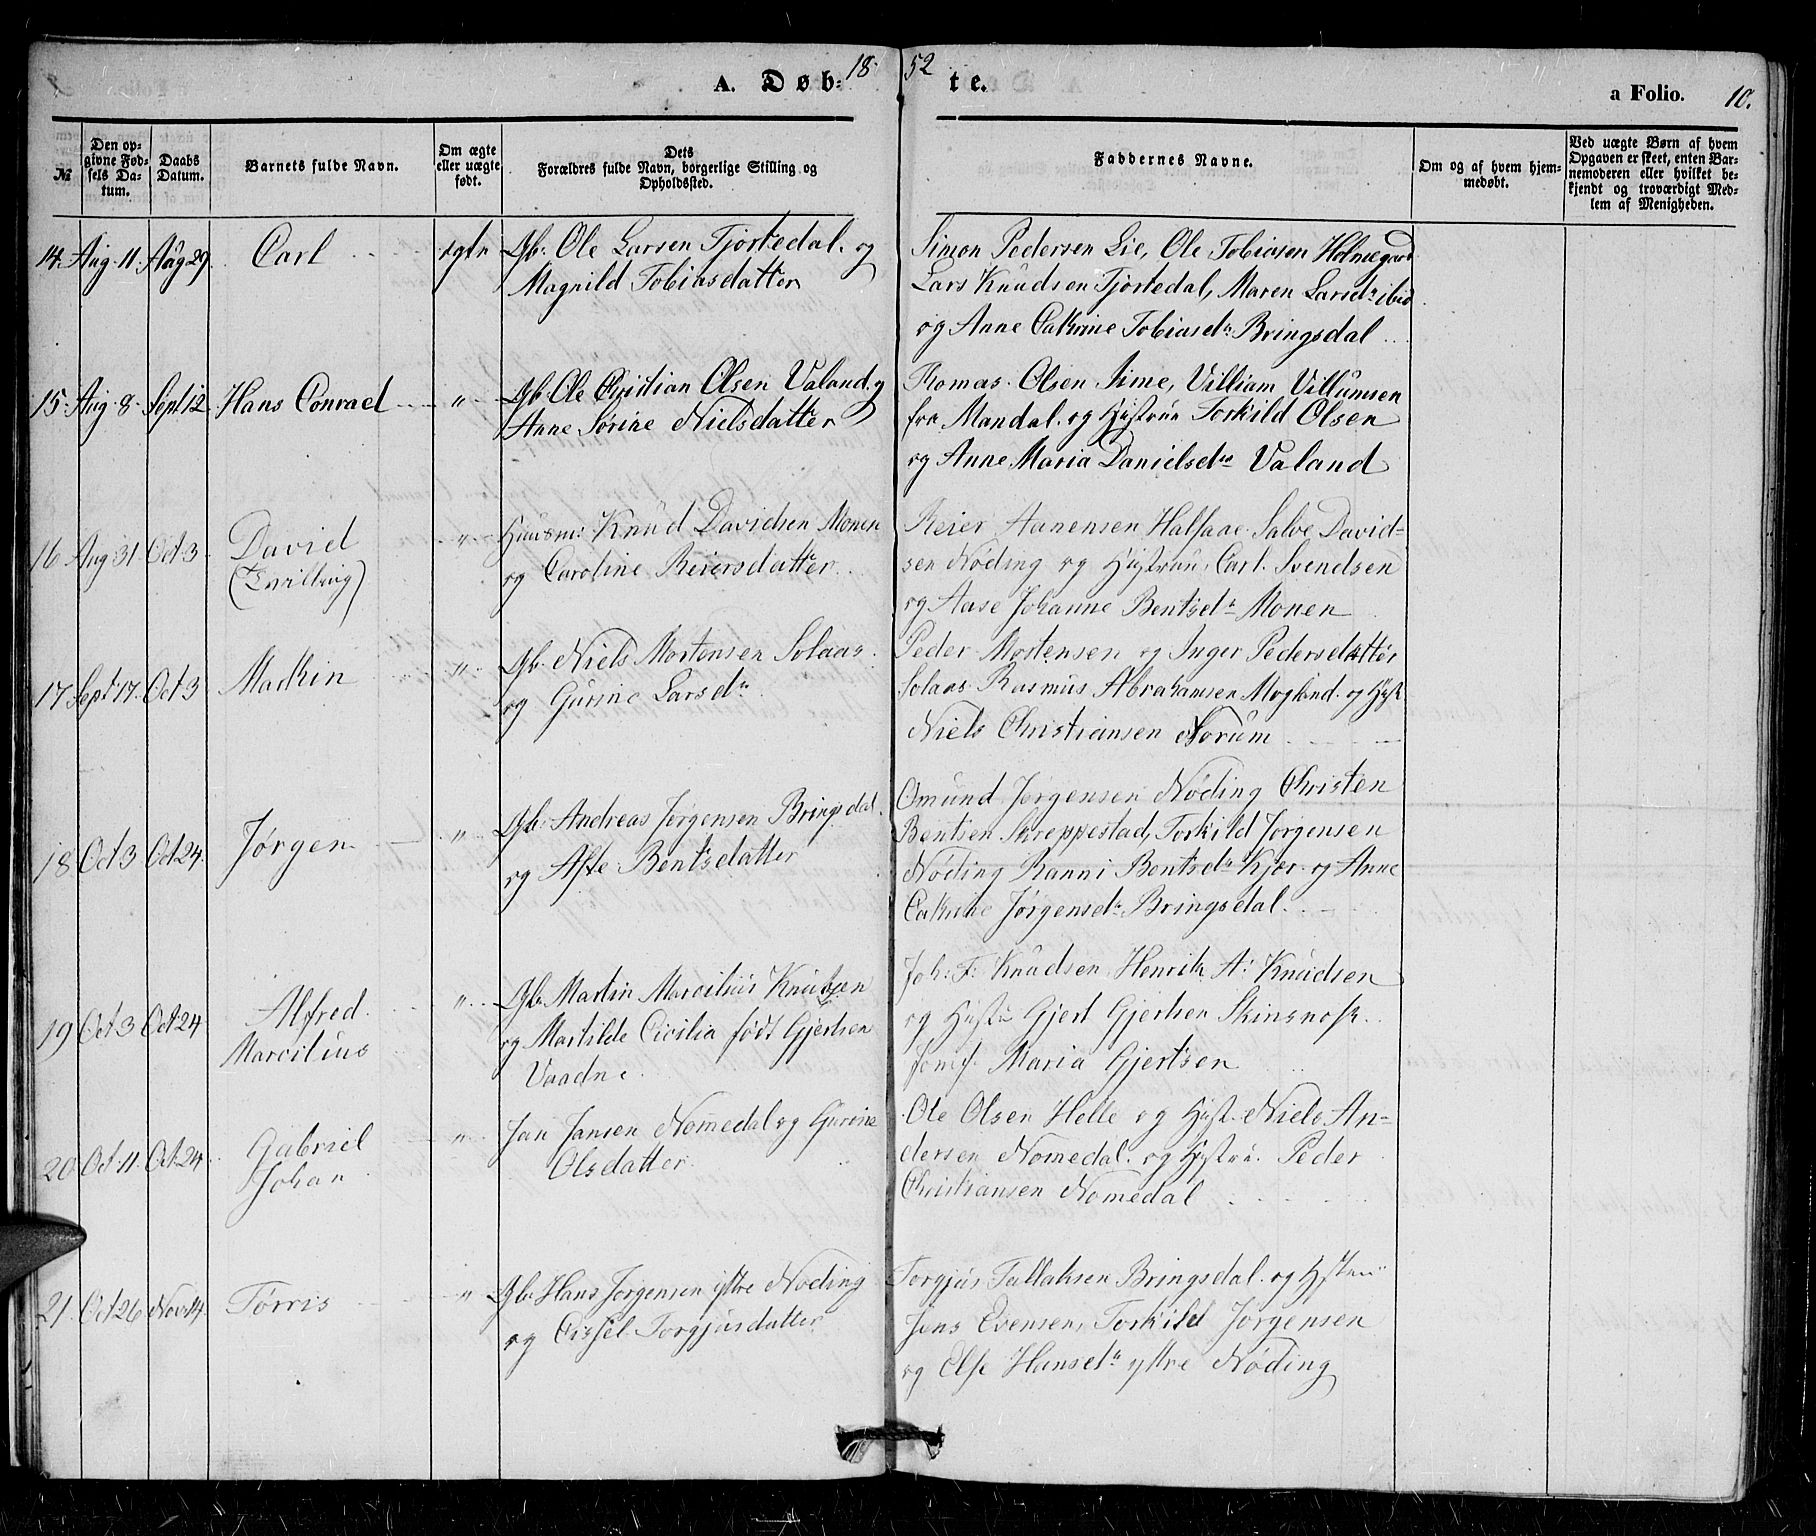 A. Døb- 18 52 te. a Folio. 10.
№
Den opgivne Fødsels Datum.
Daabs Datum.
Barnets fulde Navn.
Om ægte eller uægte født.
Dets Forældres fulde Navn, borgerlige Stilling og Opholdssted.
Faddernes Navne.
Om og af hvem hjemmedøbt.
Ved uægte Børn af hvem Opgaven er skeet, enten Barnemoderen eller hvilket bekjendt og troværdigt Medlem af Menigheden.
14. Aug. 11. Aug 29. Carl ægte Gb. Ole Larsen Tjortedal. og
Magnild Tobiasdatter
Simon Pedersen Lie, Ole Tobiasen Holmegaard
Lars Knudsen Tjortedal, Maren Larsdr ibid
og Anne Cathrine Tobiasdr Bringsdal
15. Aug. 8. Sept 12 Hans Conrad " Gb. Ole Christian Olsen Valand. og
Anne Sørine Nielsdatter
Thomas Olsen Sime, Villiam Villumsen
fra Mandal. og Hustrue Torkild Olsen
og Anne Maria Danielsdr Valand
16 Aug 31. Oct 3. David
(Tvilling)
" Huusm: Knud Davidsen Monen
og Caroline Reiersdatter.
Reier Aanensen Halsaae Salve David-
sen Nøding og Hustrue, Carl Svendsen
og Aase Johanne Bentsdr Monen
17 Sept 17. Oct 3 Mathin " Gb. Niels Mortensen Solaas.
og Gurine Larsdr
Peder Mortensen og Inger Pedersdatter
Solaas Rasmus Abrahamsen Moglund. og Hust
Niels Christiansen Norum
18 Oct 3 Oct 24. Jørgen " Gb. Andreas Jørgensen Bringsdal.
og Aste Bentsdatter
Omund Jørgensen Nøding Christen
Bentsen Skreppestad, Torkild Jørgensen
Nøding Ranni Bentsdr Kjær. og Anne
Cathrine Jørgensdr Bringsdal.
19 Oct 3 Oct 24 Alfred
Marcilius
" Gb. Martin Marcilius Knutzen
og Mathilde Cicilia født Gjertsen
Vaadne.
Joh: F: Knudsen Henrik A: Knudsen
og Hustr Gjert Gjertsen Skinsnos.
Jomf. Maria Gjertsen
20 Oct. 11. Oct 24. Gabriel
Johan
" Jan Jansen Nomedal og Gurine
Olsdatter.
Ole Olsen Helle og Hust. Niels An-
dersen Nomedal. og Hustrue. Peder
Christiansen Nomedal
21. Oct 26 Nov 14. Tørris " Gb. Hans Jørgensen ystre Nøding
og Cissel Torgjusdatter
Torgjus Tallaksen Bringsdal. og Hstrue
Jens Evensen, Torkild Jørgensen
og Else Hansdr ystre Nøding